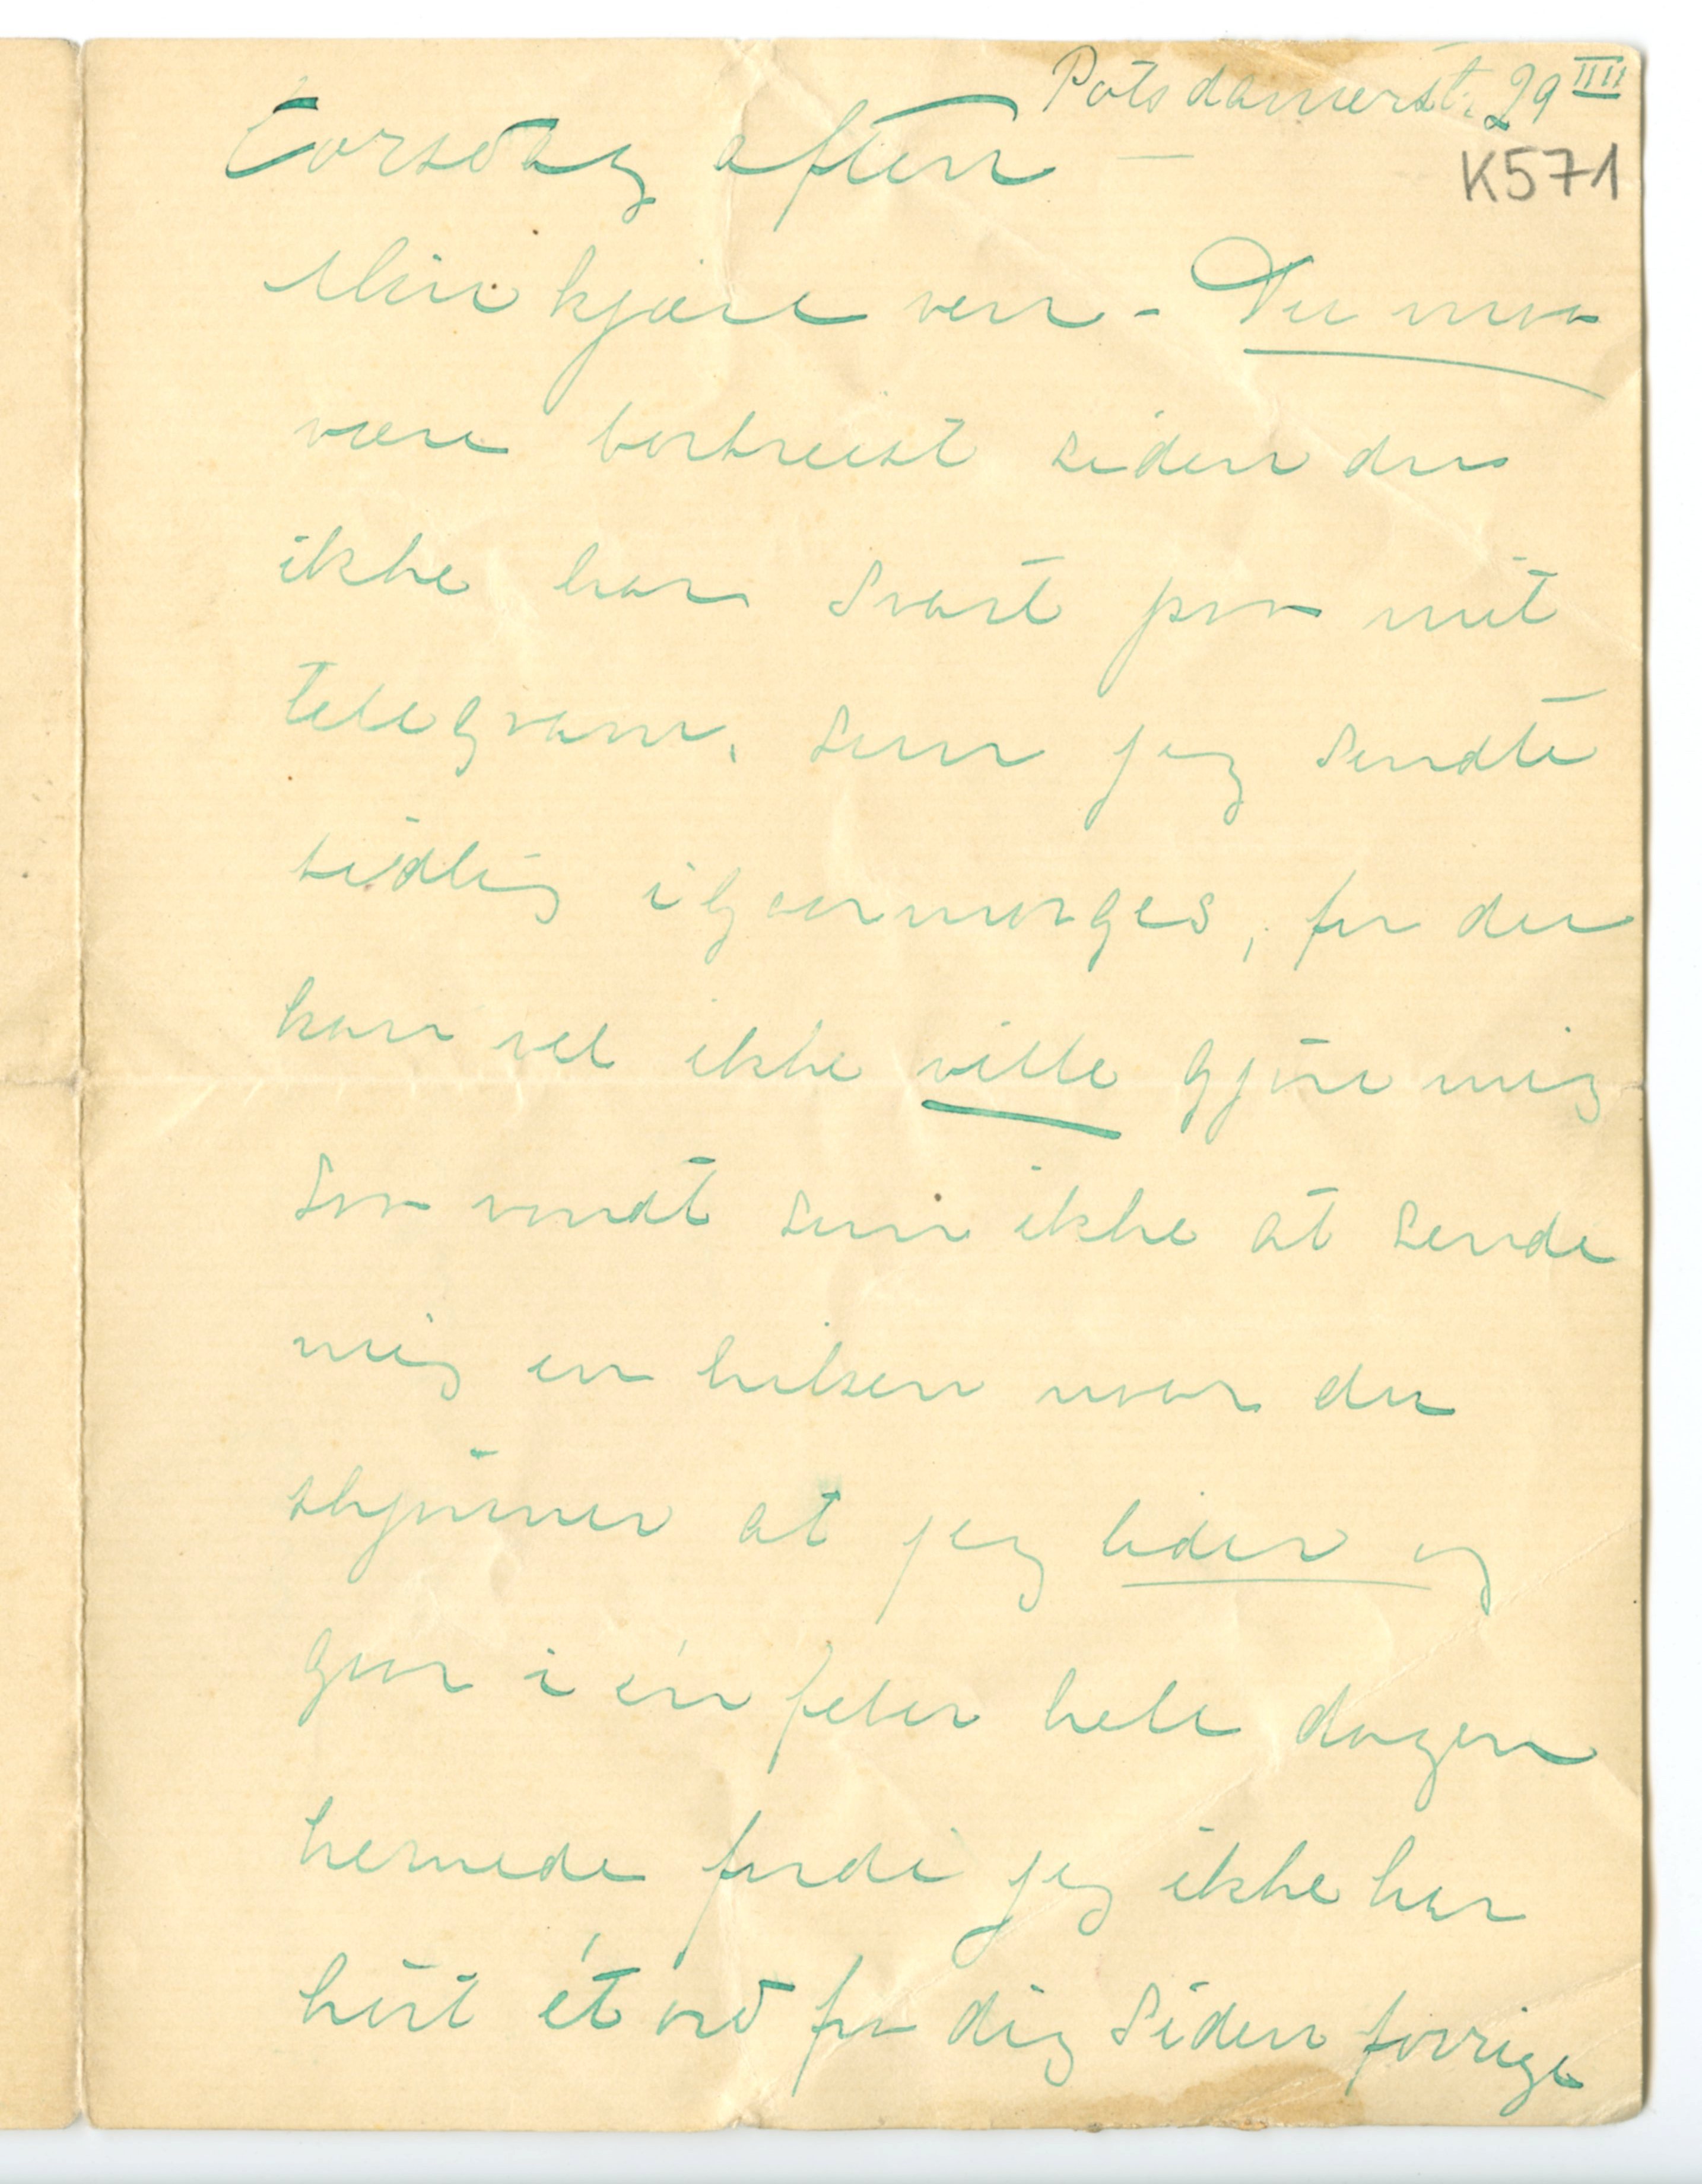 Potsdamerst. 29 IIII
K571
torsdag aften —
Min kjære ven – Du maa
være bortreist siden du
ikke har svart paa mit
telegram, som jeg sendte
tidlig igaarmorges, for du
kan vel ikke ville gjøre mig
saa vondt som ikke at sende
mig en hilsen naar du
skjønner at jeg lider og
gaar i én feber hele dagen
hernede fordi jeg ikke har
hørt ét ord fra dig siden forrige